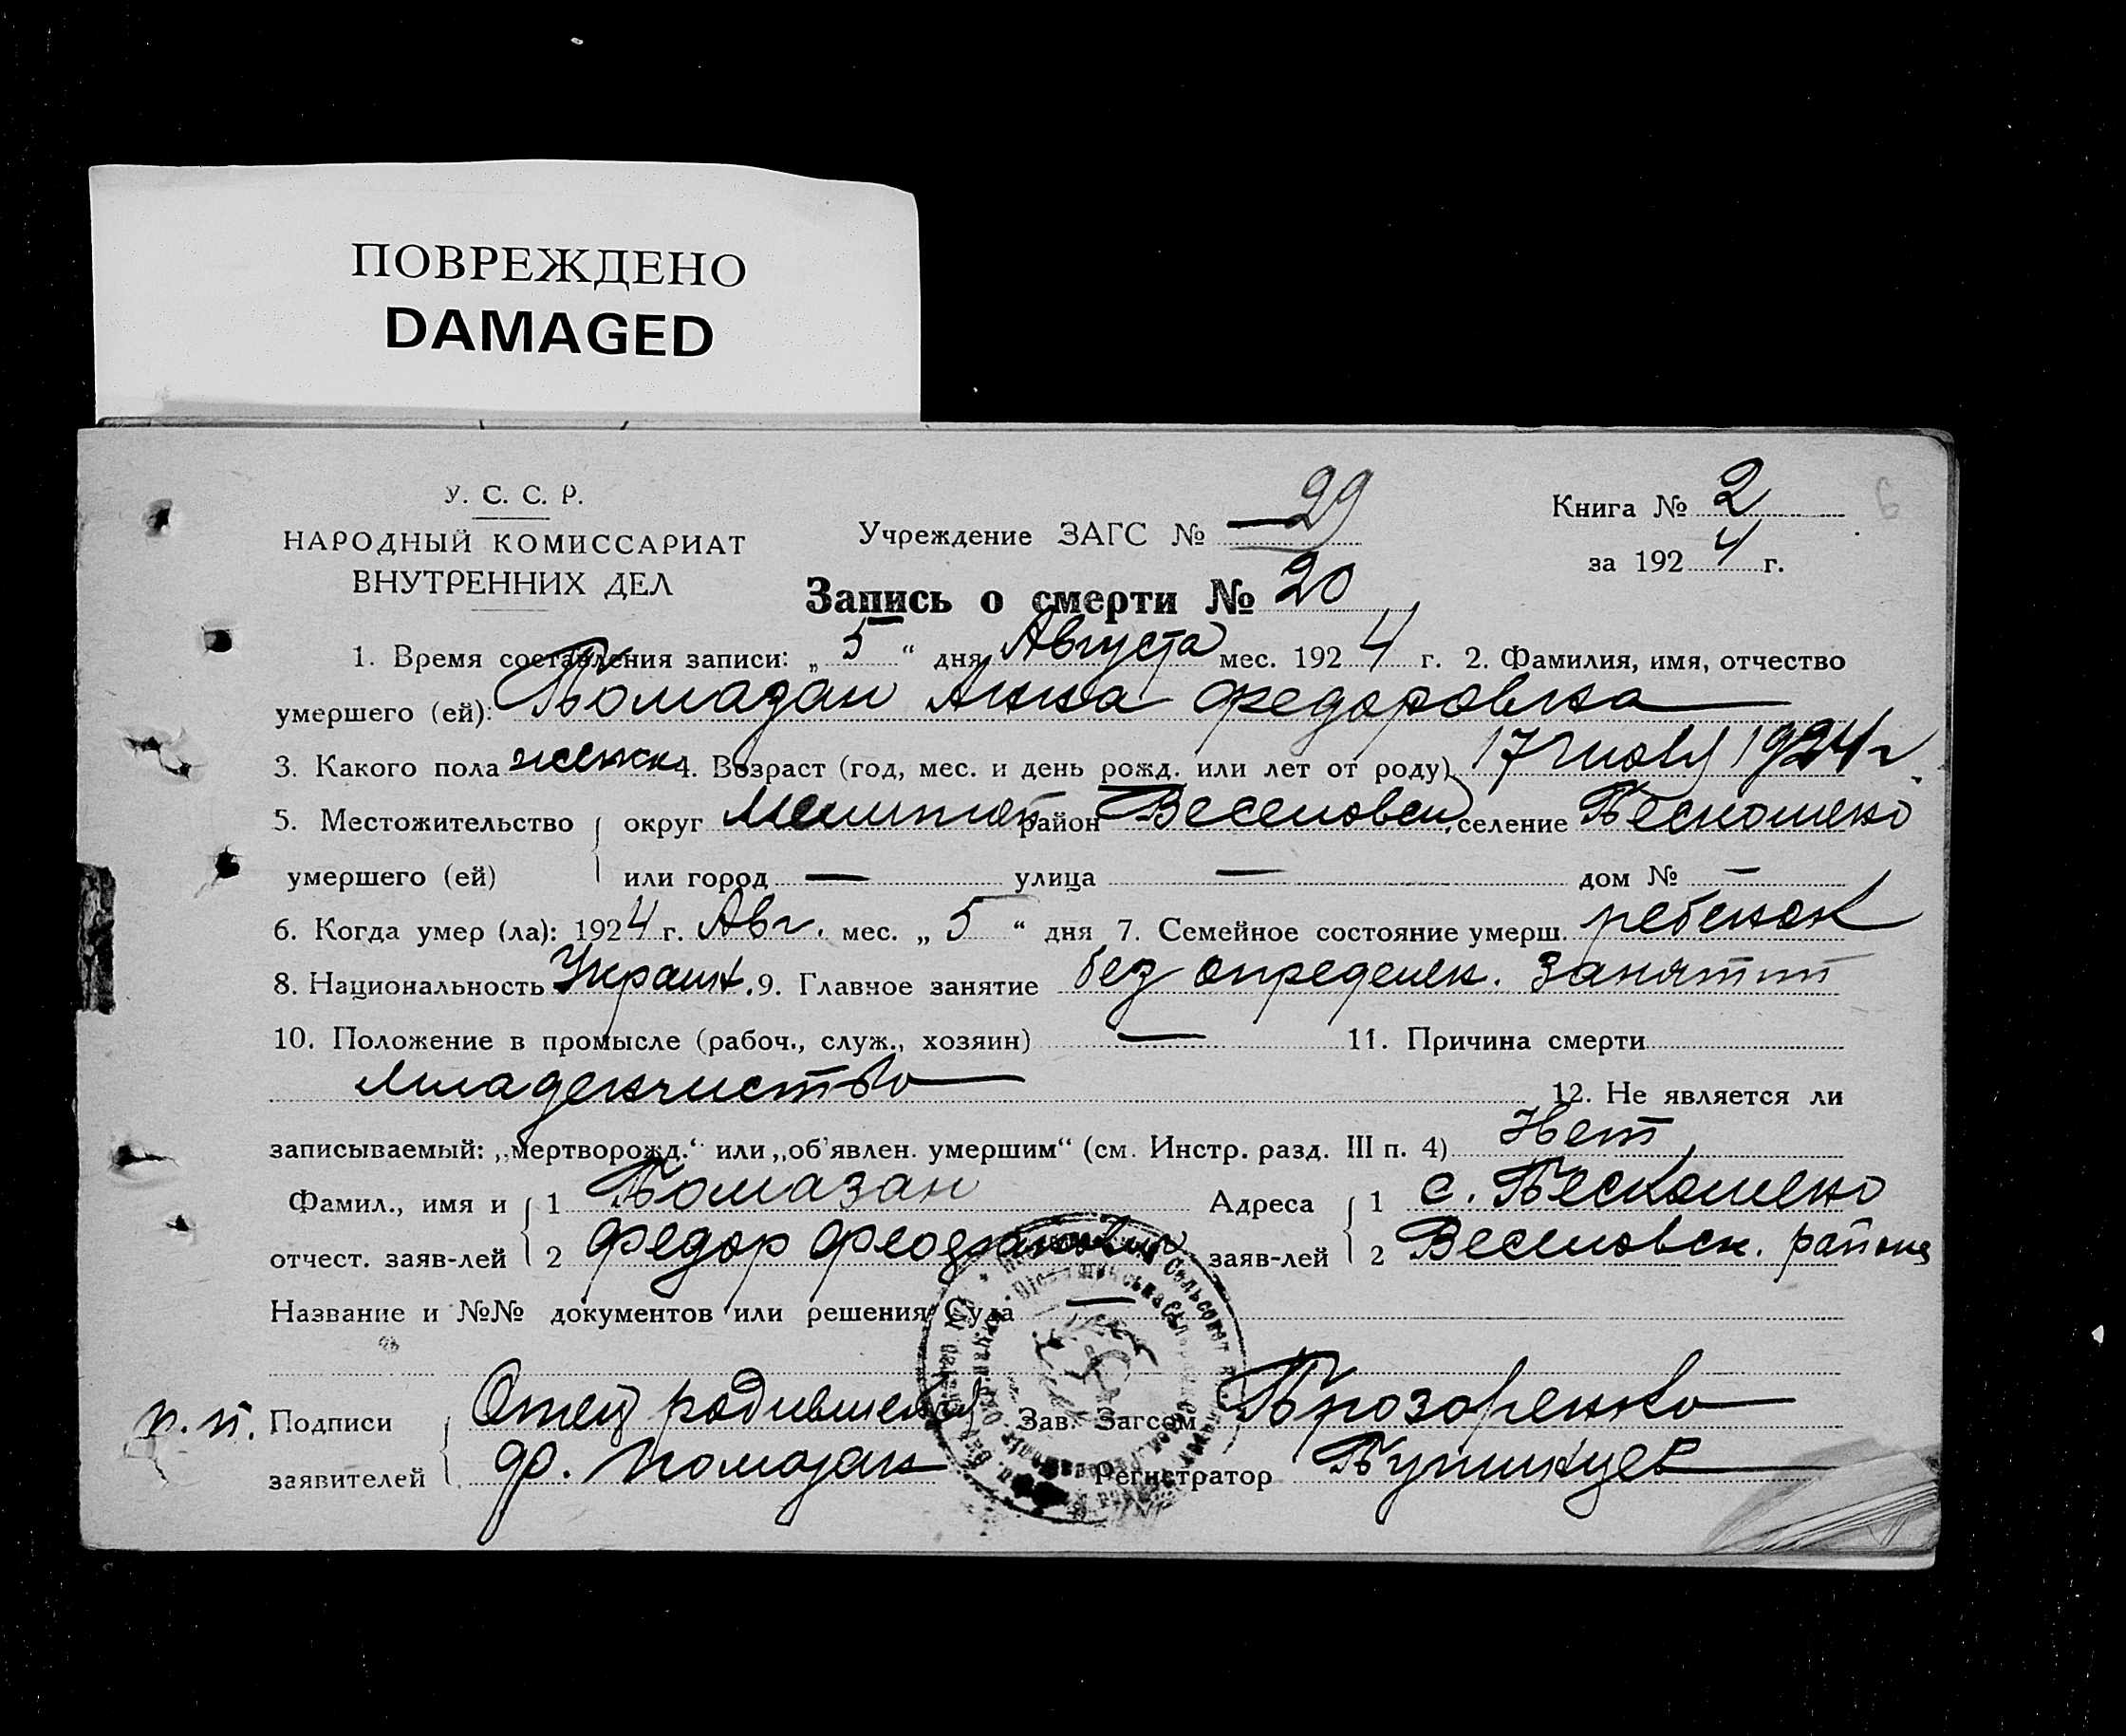 ПОВРЕЖДЕНО
DAMAGED
У. С. С. Р.
НАРОДНЫЙ КОМИССАРИАТ
ВНУТРЕННИХ ДЕЛ
Учреждение ЗАГС № 29
Книга № 2
за 1924 г.
6
Запись о смерти № 20
1. Время составления записи: „5“ дня Августа мес. 1924 г. 2. Фамилия, имя, отчество
умершего (ей): Помазан Анна Федоровна
3. Какого пола женск 4. Возраст (год, мес. и день рожд. или лет от роду) 17 1924 г.
5. Местожительство округ Мелитоп район Веселовск, селение Пескошено
умершего (ей) или город — улица — дом № —
6. Когда умер (ла): 1924 г. Авг. мес. „5“ дня 7. Семейное состояние умерш. ребенок
8. Национальность Украин. 9. Главное занятие без определен. занятий
10. Положение в промысле (рабоч., служ., хозяин) — 11. Причина смерти
младенчиство
12. Не является ли
записываемый: „мертворожд.“ или „об'явлен. умершим“ (см. Инстр. разд. III п. 4) Нет
Фамил., имя и 1 Помазан Адреса 1 с. Пескошено
отчест. заяв-лей 2 Федор заяв-лей 2 Веселовск. района
Название и №№ документов или решения Суда —
п. п. Подписи Отец родившейся Зав. Загсом Прозоренко
заявителей Ф. Помазан Регистратор